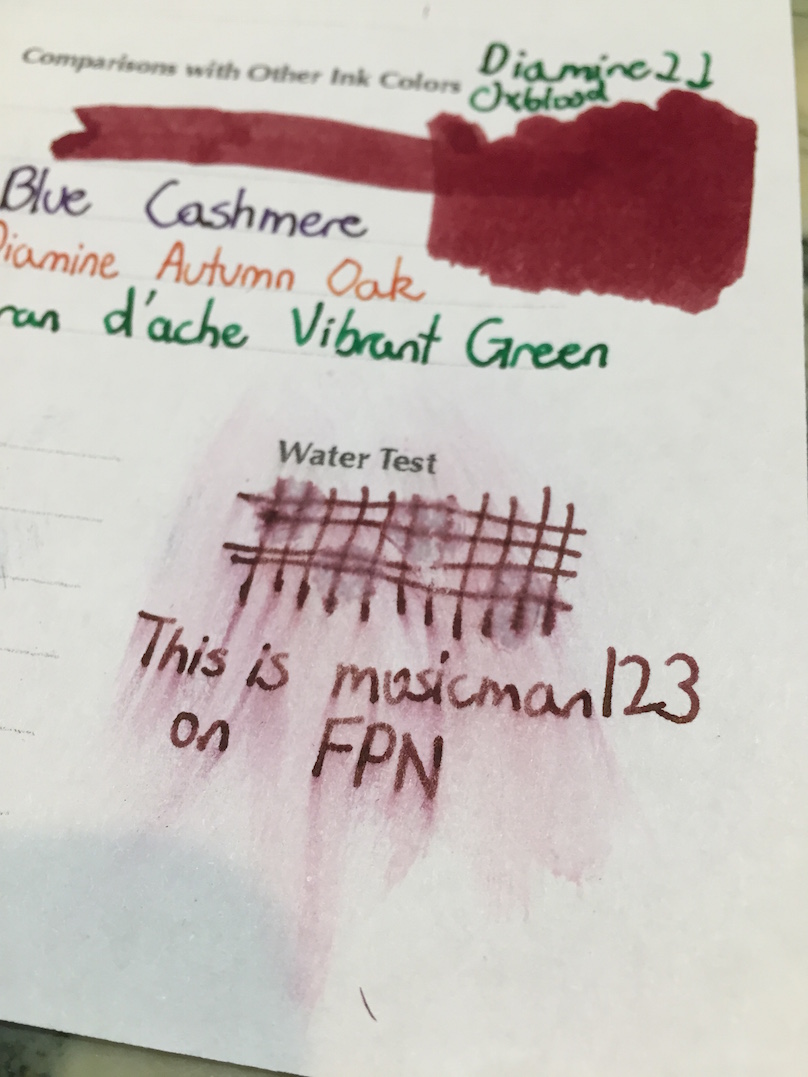 Comparisons with Other Ink Colors
Diamine
Oxblood
Blue Cashmere
Diamine Autumn Oak
ran d'ache Vibrant Green
Water Test
This is musicman123
on FPN